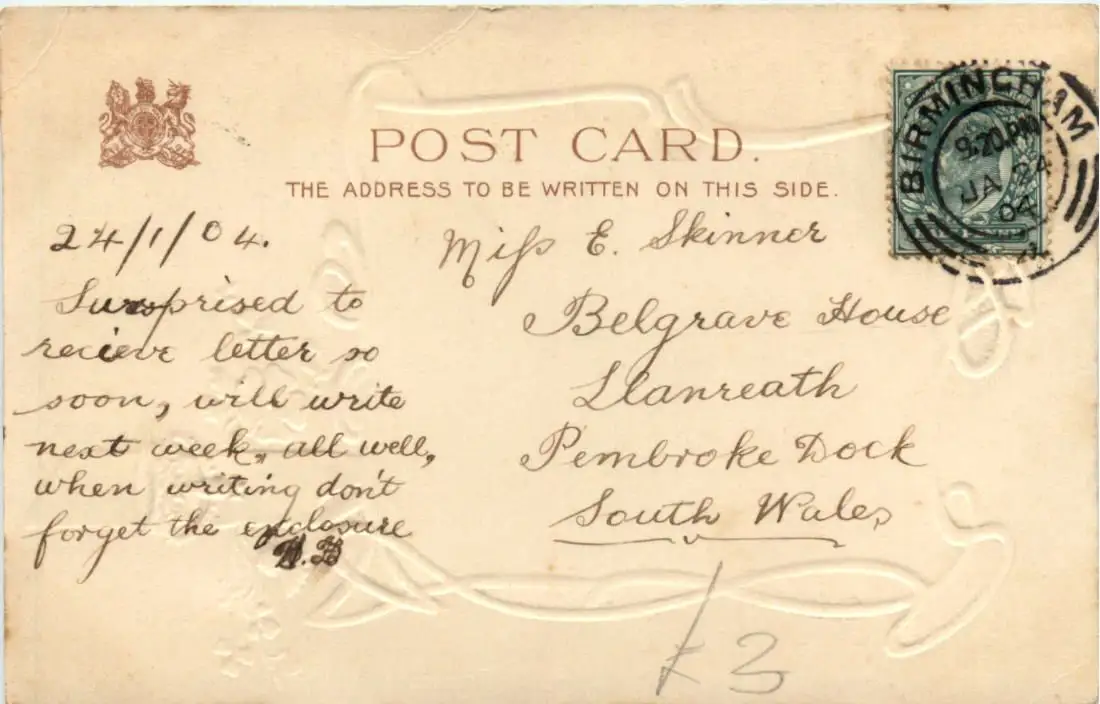 POST CARD.
THE ADDRESS TO BE WRITTEN ON THIS SIDE.
BIRMINGHAM
9.20.PM
JA 24
04
24/1/04.
Surprised to
recieve letter so
soon, will write
next week, all well,
when writing don't
forget the enclosure
H.B
Miſs E. Skinner
Belgrave House
Llanreath
Pembroke Dock
South Wales
£3